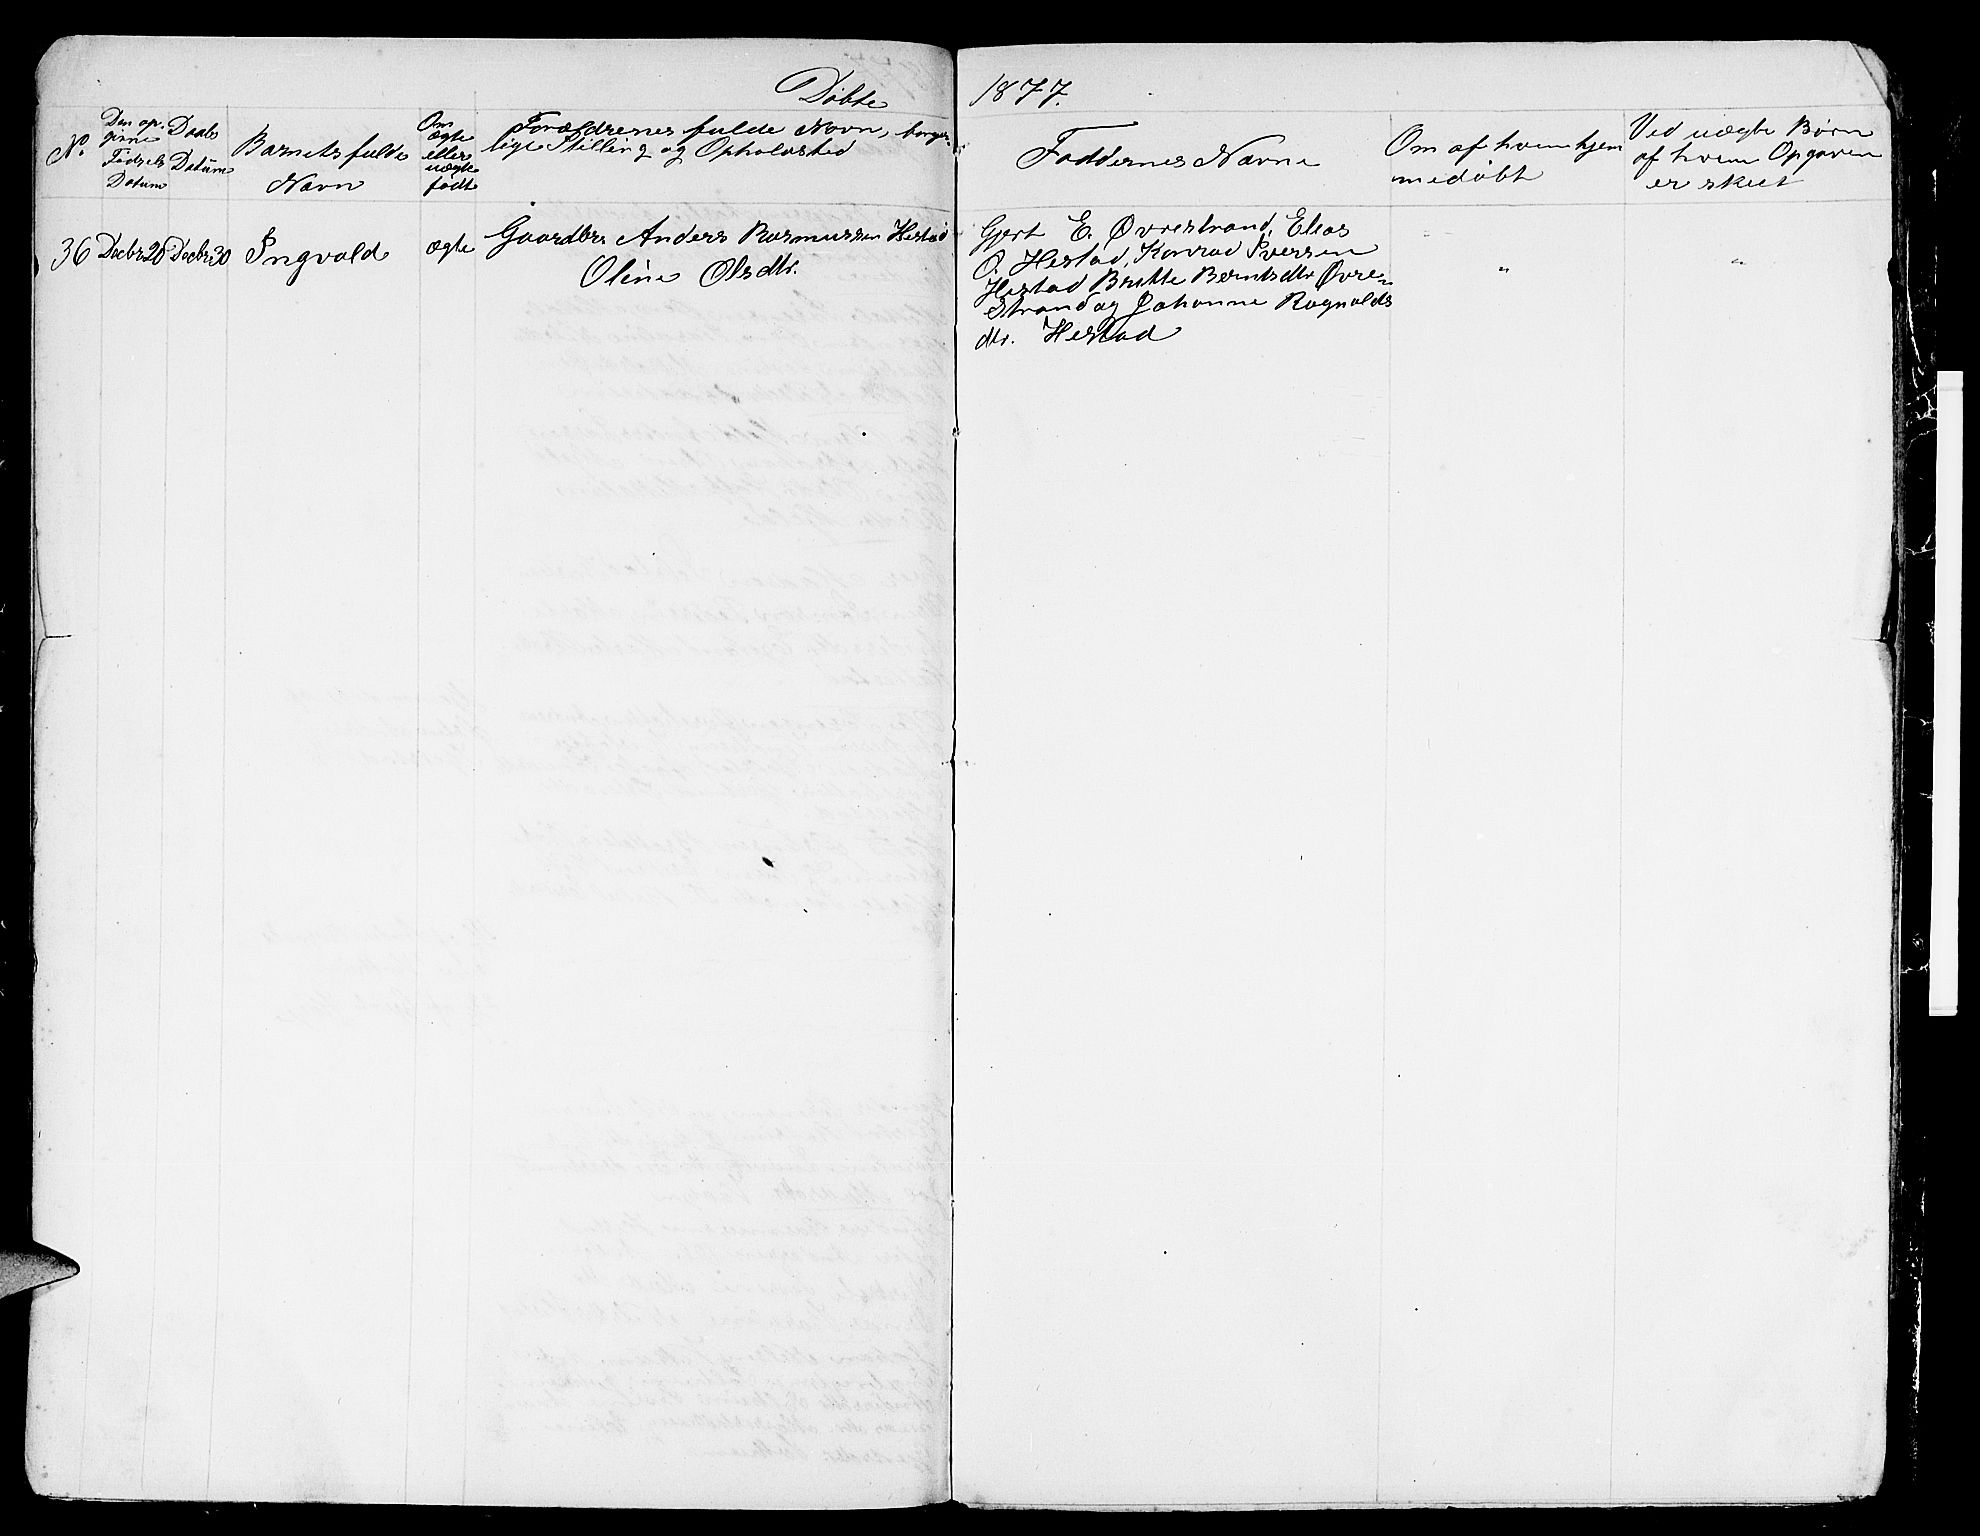 Døbte 1877.
No.
Den op-
givne
Fødsels
Datum
Daabs
Datum
Barnets fulde
Navn
Om
ægte
eller
uægte
født
Forældrenes fulde Navn, borger-
lige Stilling og Opholdsted
Faddernes Navne
Om af hvem hjem
medøbt
Ved uægte Børn
af hvem Opgaven
er skeet
36 Decbr 26 Decbr 30 Ingvald ægte
Gaardbr. Anders Rasmussen Hestad
Oline Olsdtr.
Gjert E. Øvrestrand, Elias
O. Hestad, Konrad Iversen
Hestad Britte Berntsdtr Øvre-
Strand og Johanne Ragnalds
dtr. Hestad
" "